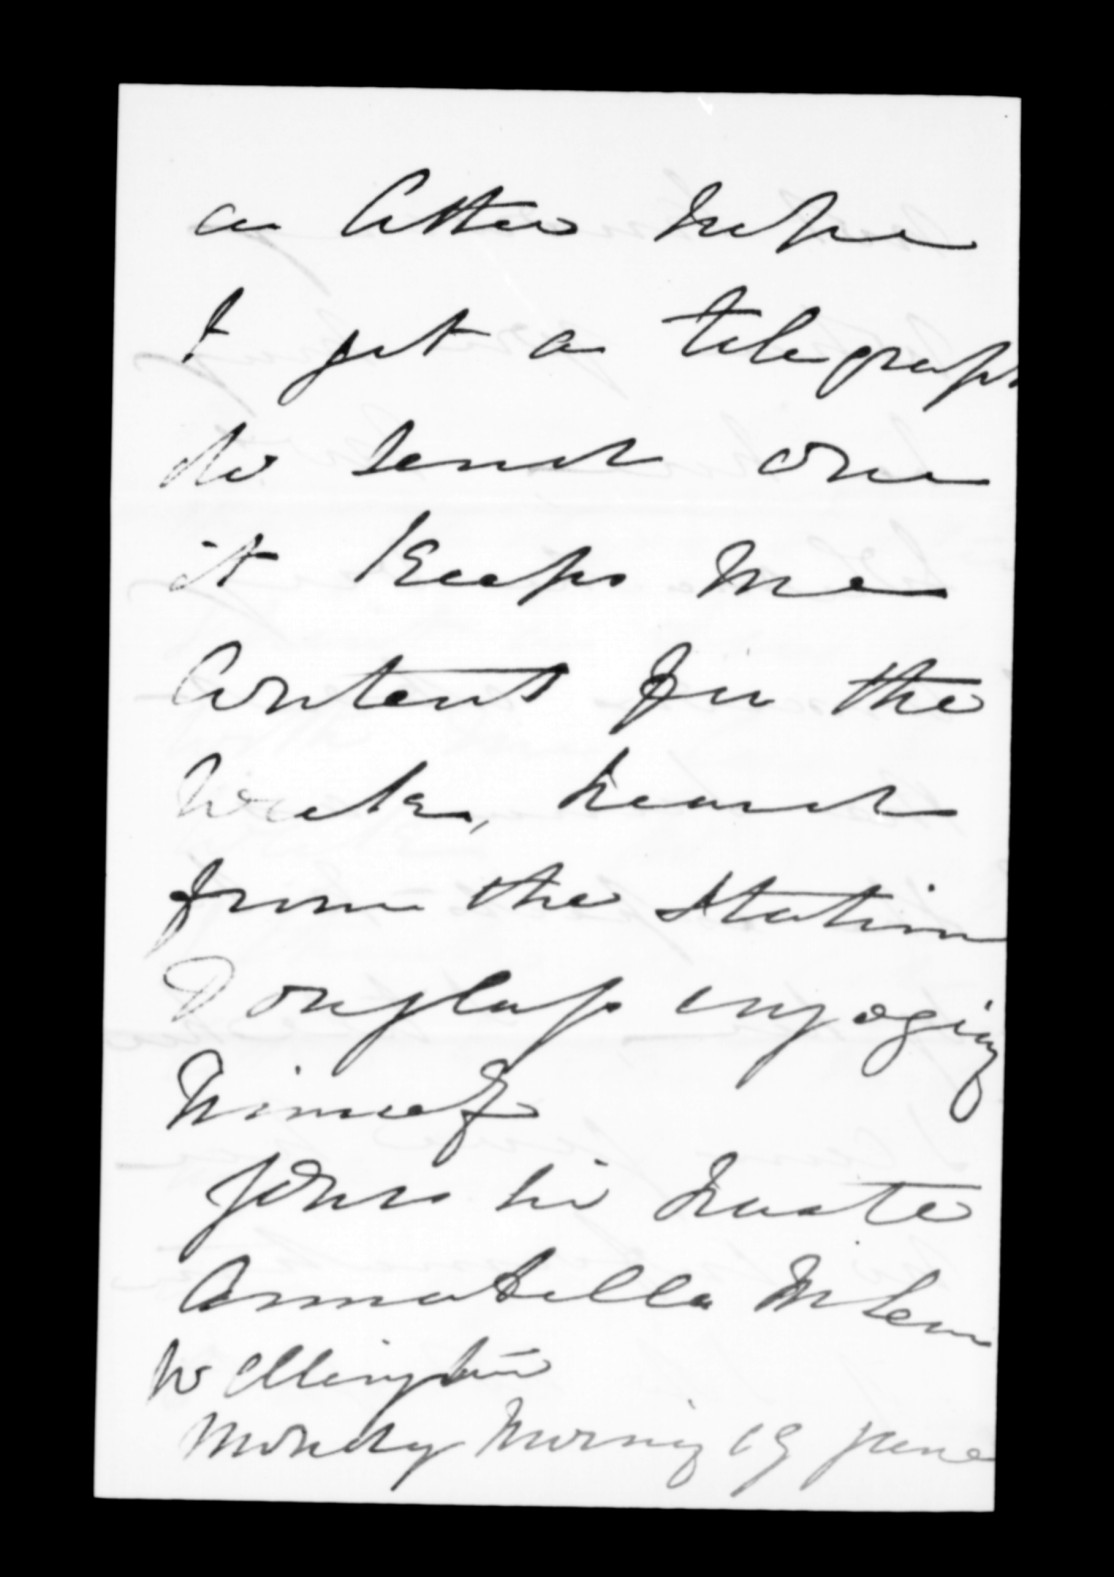 a letter hope
I get a telegraph
do send one
it Keeps me
Content for the
Week, heard
from the Station
Douglass enjoying
himself
Yours in haste
Annabella McLean
Wellington
Monday Morning 19 June